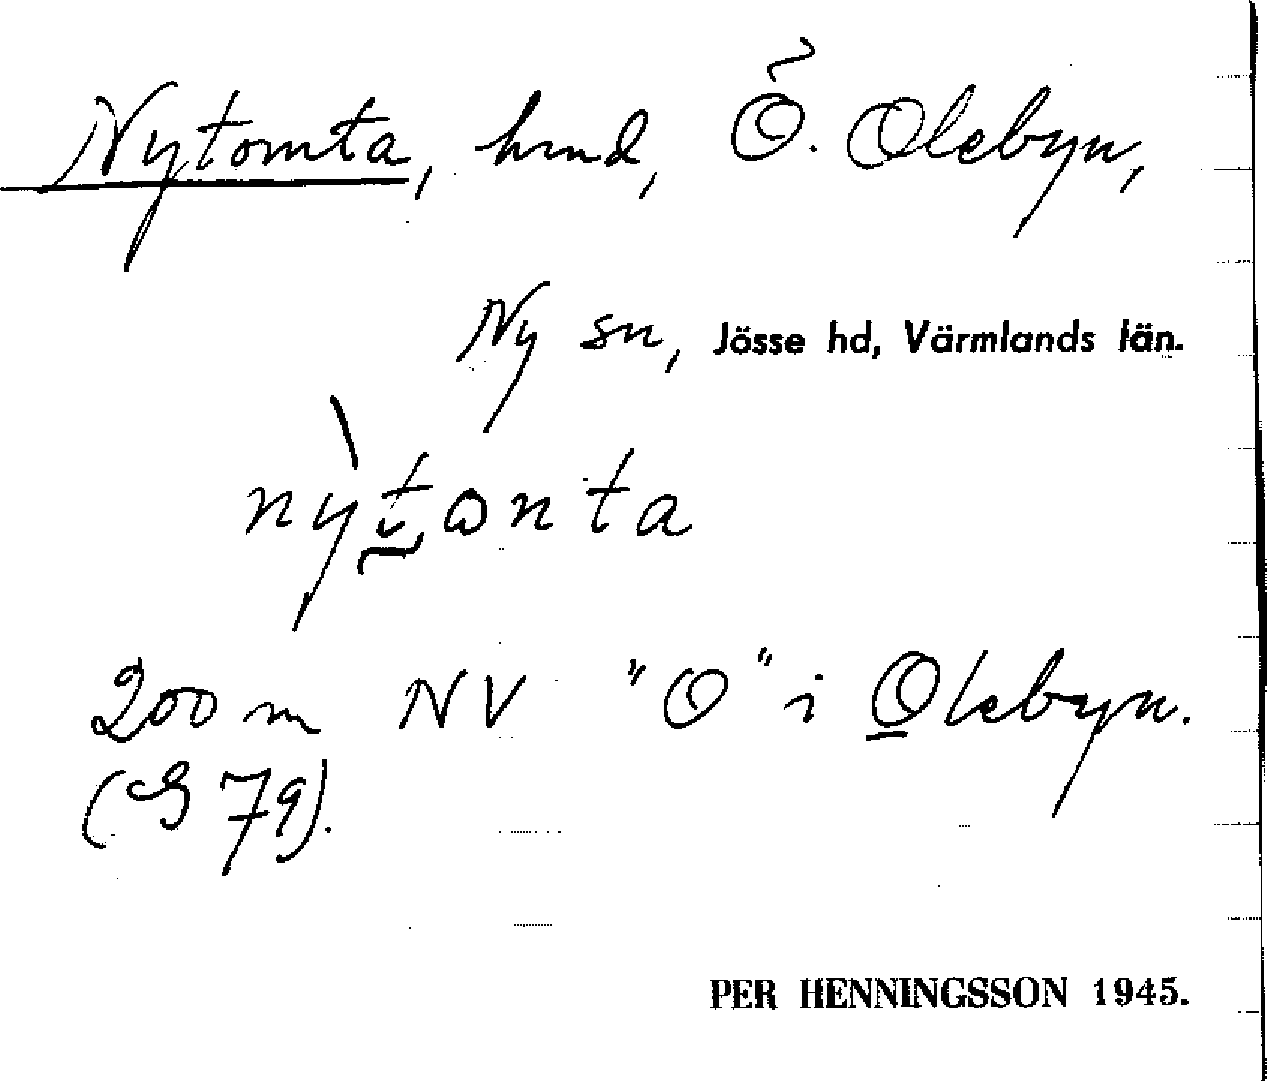 Nytomta, hmd, Ö. Olebyn,
Ny sn, Jösse hd, Värmlands län.
nỳtωnta
200 m NV "O" i Olebyn.
(G 79).
PER HENNINGSSON 1945.